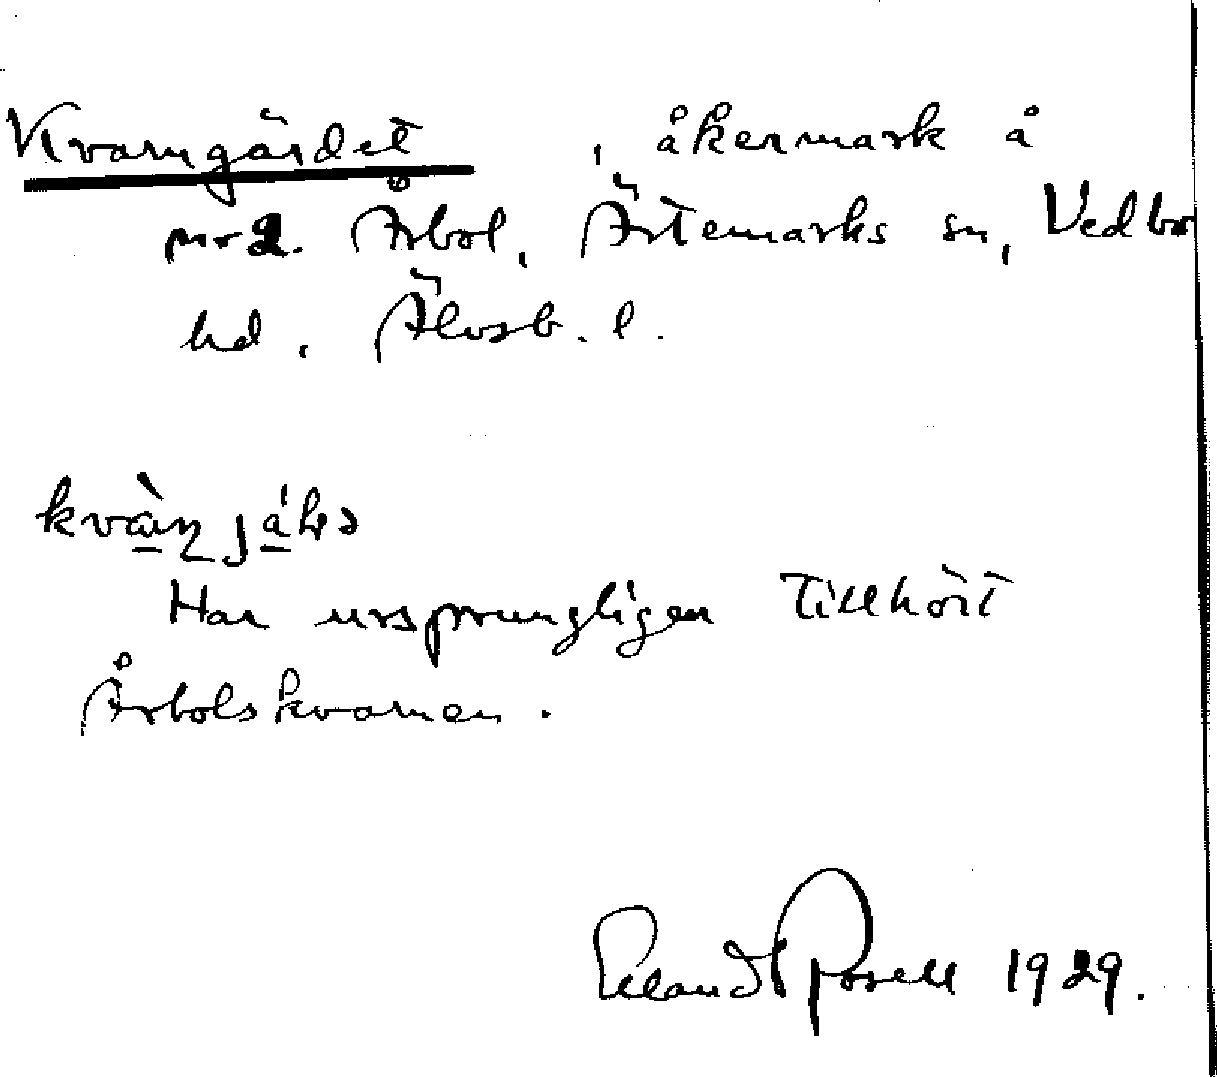 Kvarngärdet, åkermark å
nr 2. Årbol, Ärtemarks sn, Vedbo
hd, Älvsb. l.
Har ursprungligen tillhört
Årbolskvarnen.
Erland Rosell 1929.